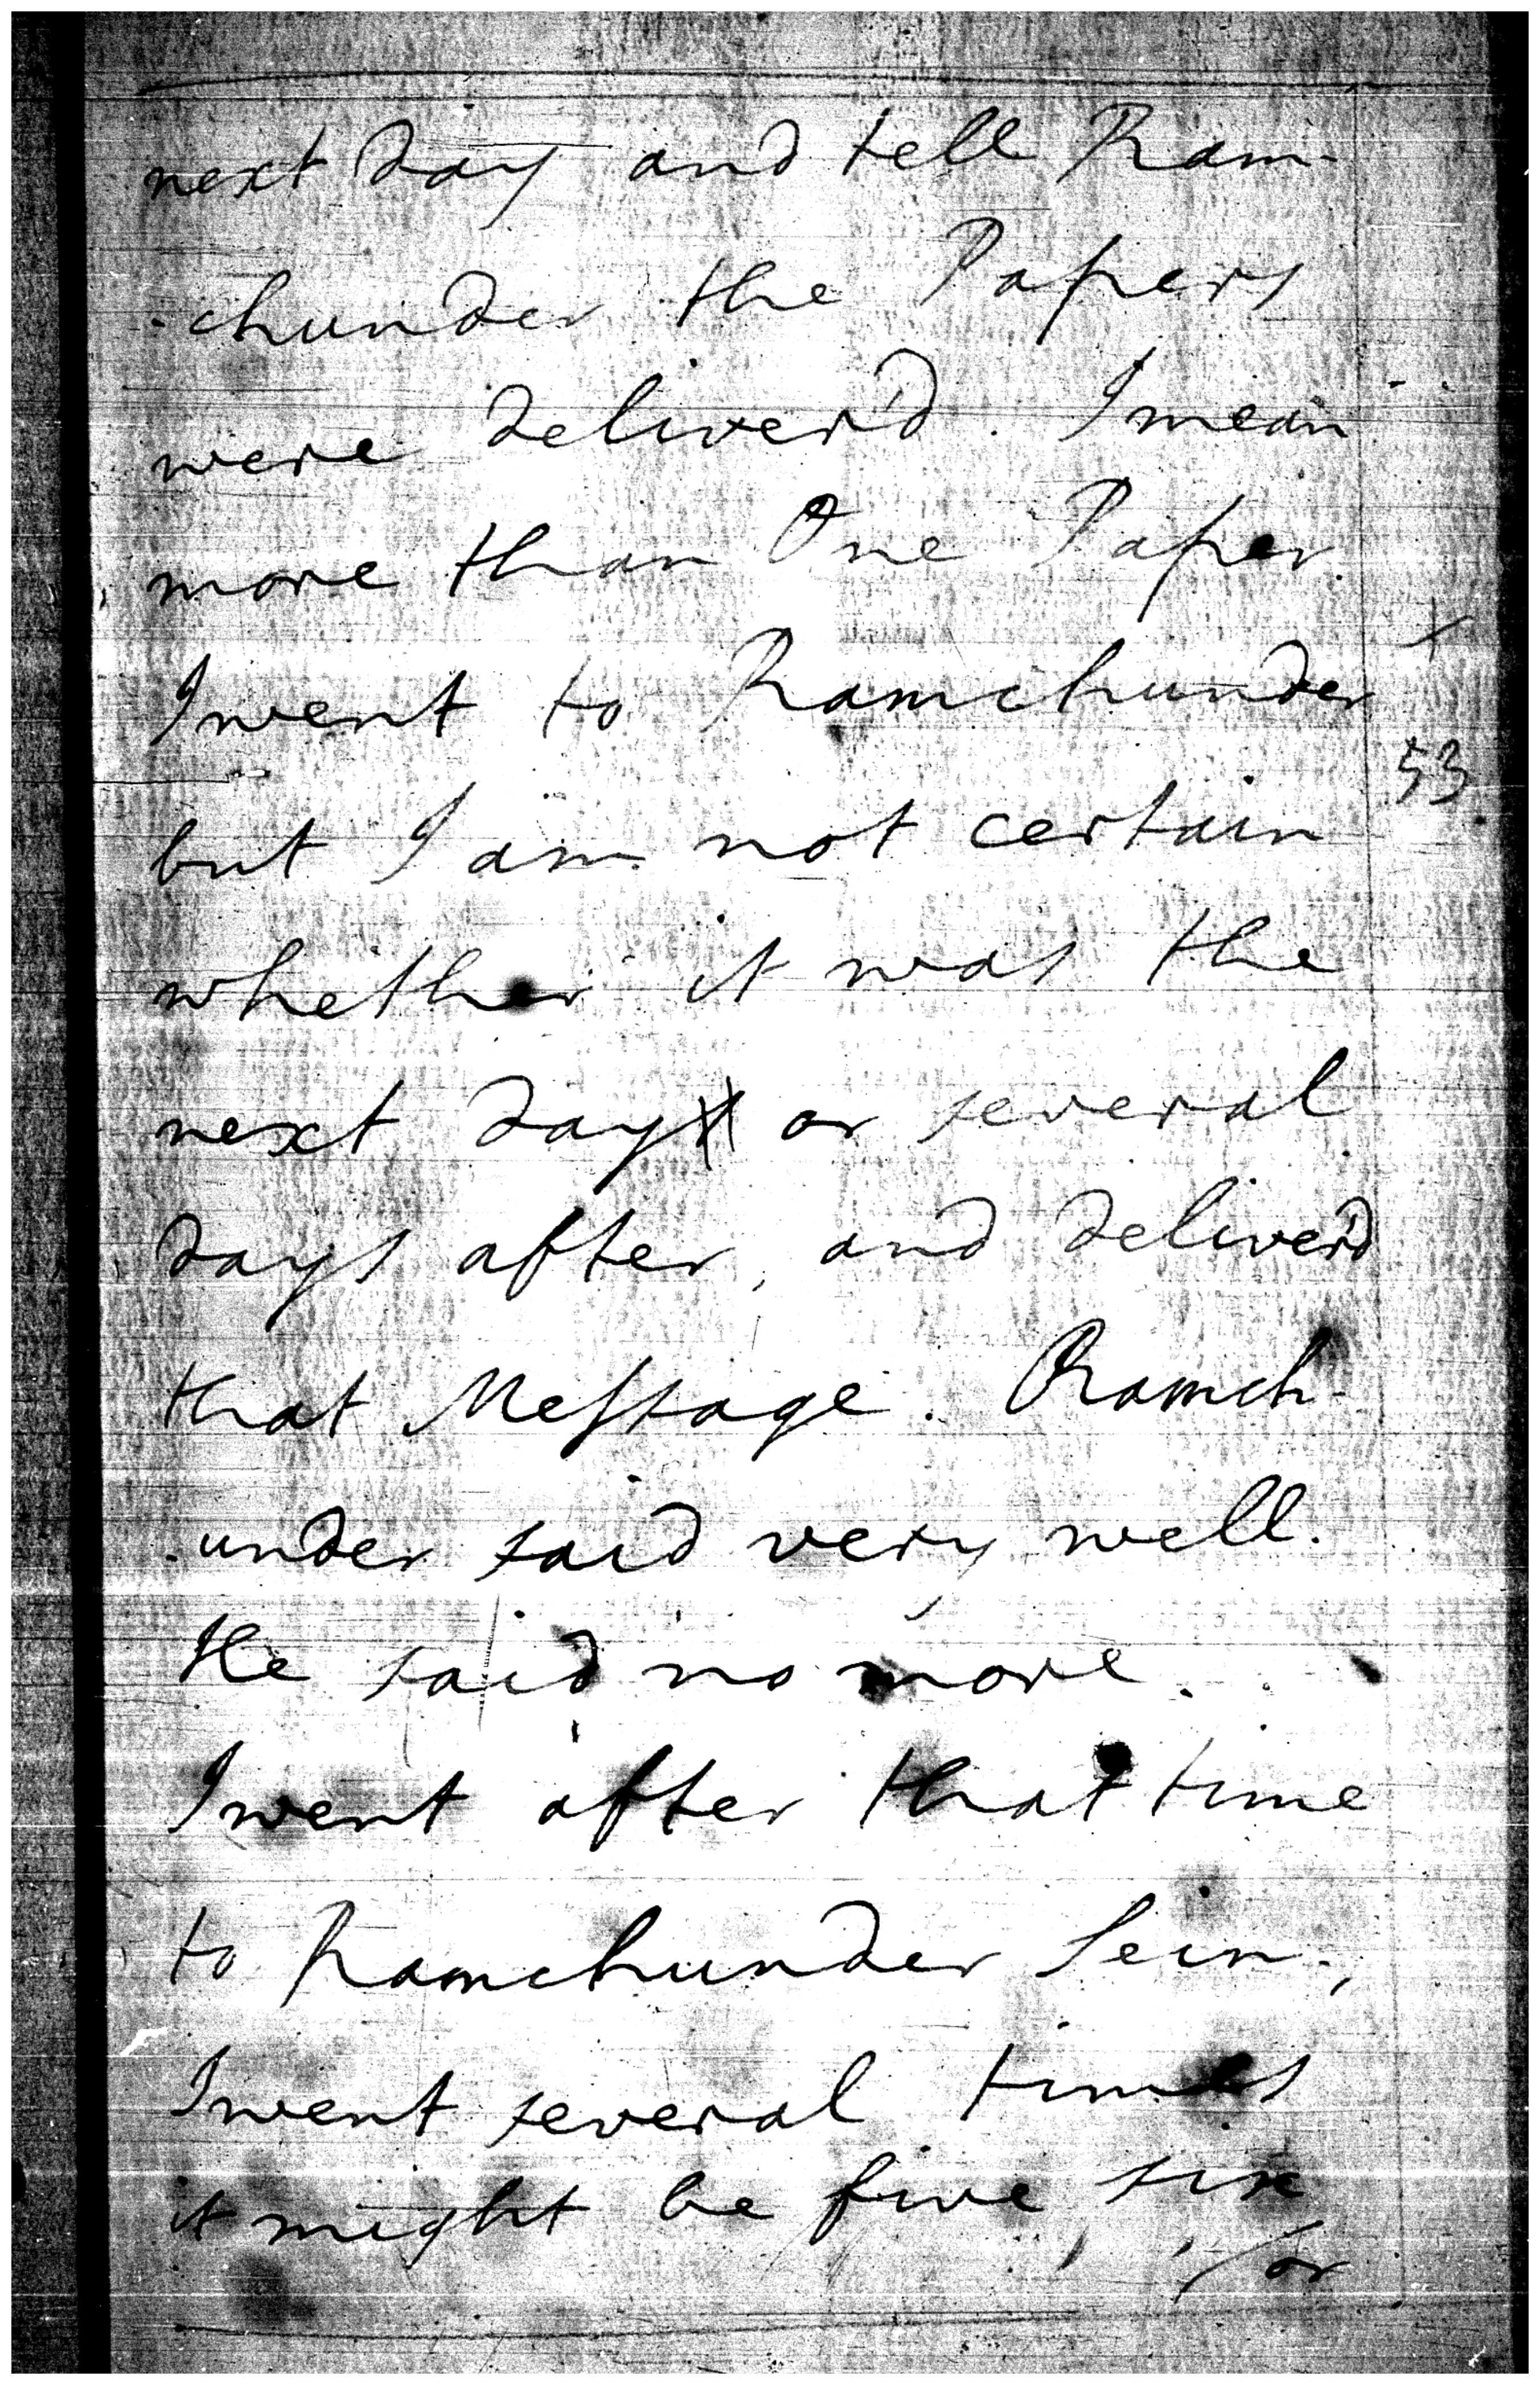 next day and tell Ram-
-chunder the Papers
were deliver'd. I mean
more than One Paper.
I went to Ramchunder
53
but I am not certain
whether it was the
next day or several
days after, and deliver'd
that Meſsage. Ramch-
-under said very well.
He said no more.
I went after that time
to Ramchunder Sein,
I went several times
it might be five, six
/or